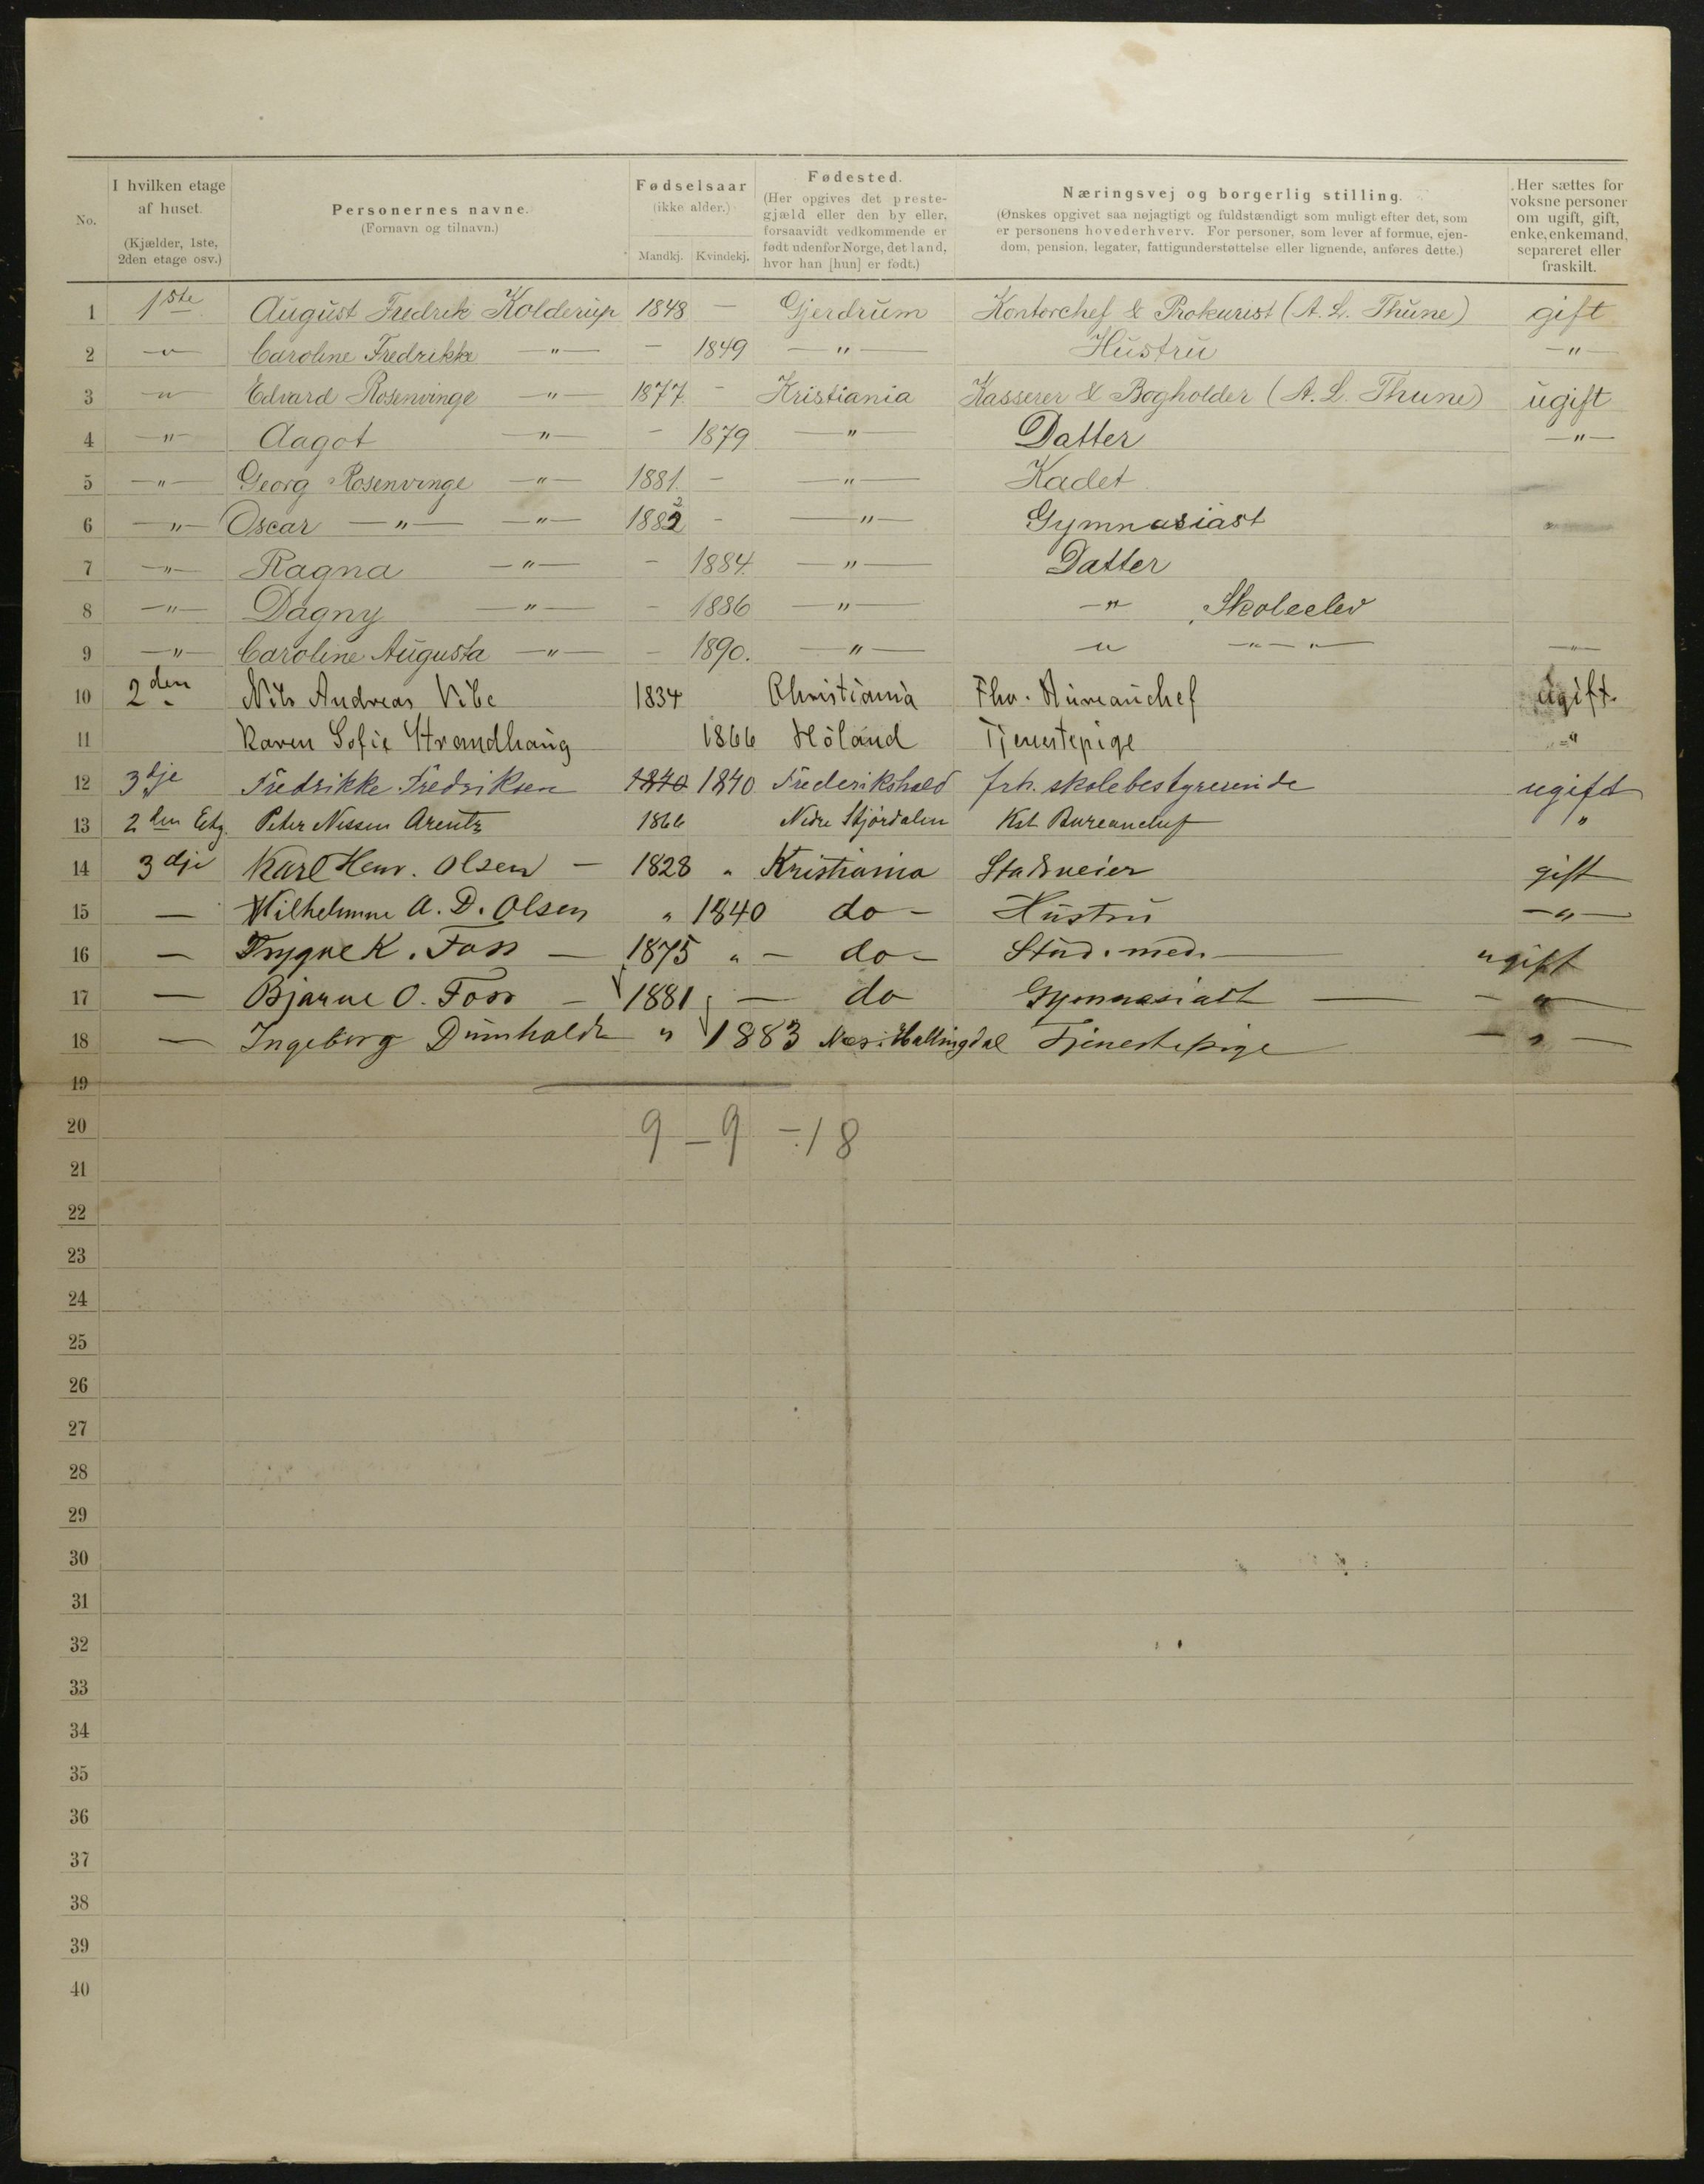 No.
I hvilken etage af huset. (Kjælder, 1ste, 2den etage osv.)
Personernes navne. (Fornavn og tilnavn.)
Fødselsaar (ikke alder.)
Mandkj. Kvindekj.
Fødested. (Her opgives det prestegjæld eller den by eller, forsaavidt vedkommende er født udenfor Norge, det land, hvor han [hun] er født.)
Næringsvej og borgerlig stilling. (Ønskes opgivet saa nøjagtigt og fuldstændigt som muligt efter det, som er personens hovederhverv. For personer, som lever af formue, ejendom, pension, legater, fattigunderstøttelse eller lignende, anføres dette.)
Her sættes for voksne personer om ugift, gift, enke, enkemand, separeret eller fraskilt.
1 1ste August Fredrik Kolderup 1848 — Gjerdrum Kontorchef & Prokurist (A. L. Thune) gift
2 —"— Caroline Fredrikke —"— — 1849 —"— Hustru —"—
3 —"— Edvard Rosenvinge —"— 1877 — Kristiania Kasserer & Bogholder (A. L. Thune) ugift
4 —"— Aagot —"— — 1879 —"— Datter —"—
5 —"— Georg Rosenvinge —"— 1881. — —"— Kadet
6 —"— Oscar —"— —"— 1882 — —"— Gymnasiast
7 —"— Ragna —"— — 1884. —"— Datter
8 —"— Dagny —"— — 1886 —"— —"— Skoleelev
9 —"— Caroline Augusta —"— — 1890. —"— " —"—"— —"—
10 2den Nils Andreas Vibe 1834 Christiania Fhv. Bureauchef ugift.
11 Karen Sofie Strandhaug 1866 Höland Tjenestepige "
12 3dje Fredrikke Fredriksen 1840 1840 Frederikshald frh. skolebestyrerinde ugift
13 2den Etg. Peter Nissen Arentz 1866 Nedre Stjördalen Kst. Bureauchef "
14 3dje Karl Henr. Olsen — 1828 " Kristiania Stadsveier gift
15 — Wilhelmine A. D. Olsen " 1840 do — Hustru —"—
16 — Trygve K. Foss — 1875 " — do — Stud. med. — ugift
17 — Bjarne O. Foss — 1881 — do Gymnasiast — — " —
18 — Ingeborg " 1883 Nes i Hallingdal Tjenestepige — " —
19
20
9 — 9 = 18
21
22
23
24
25
26
27
28
29
30
31
32
33
34
35
36
37
38
39
40